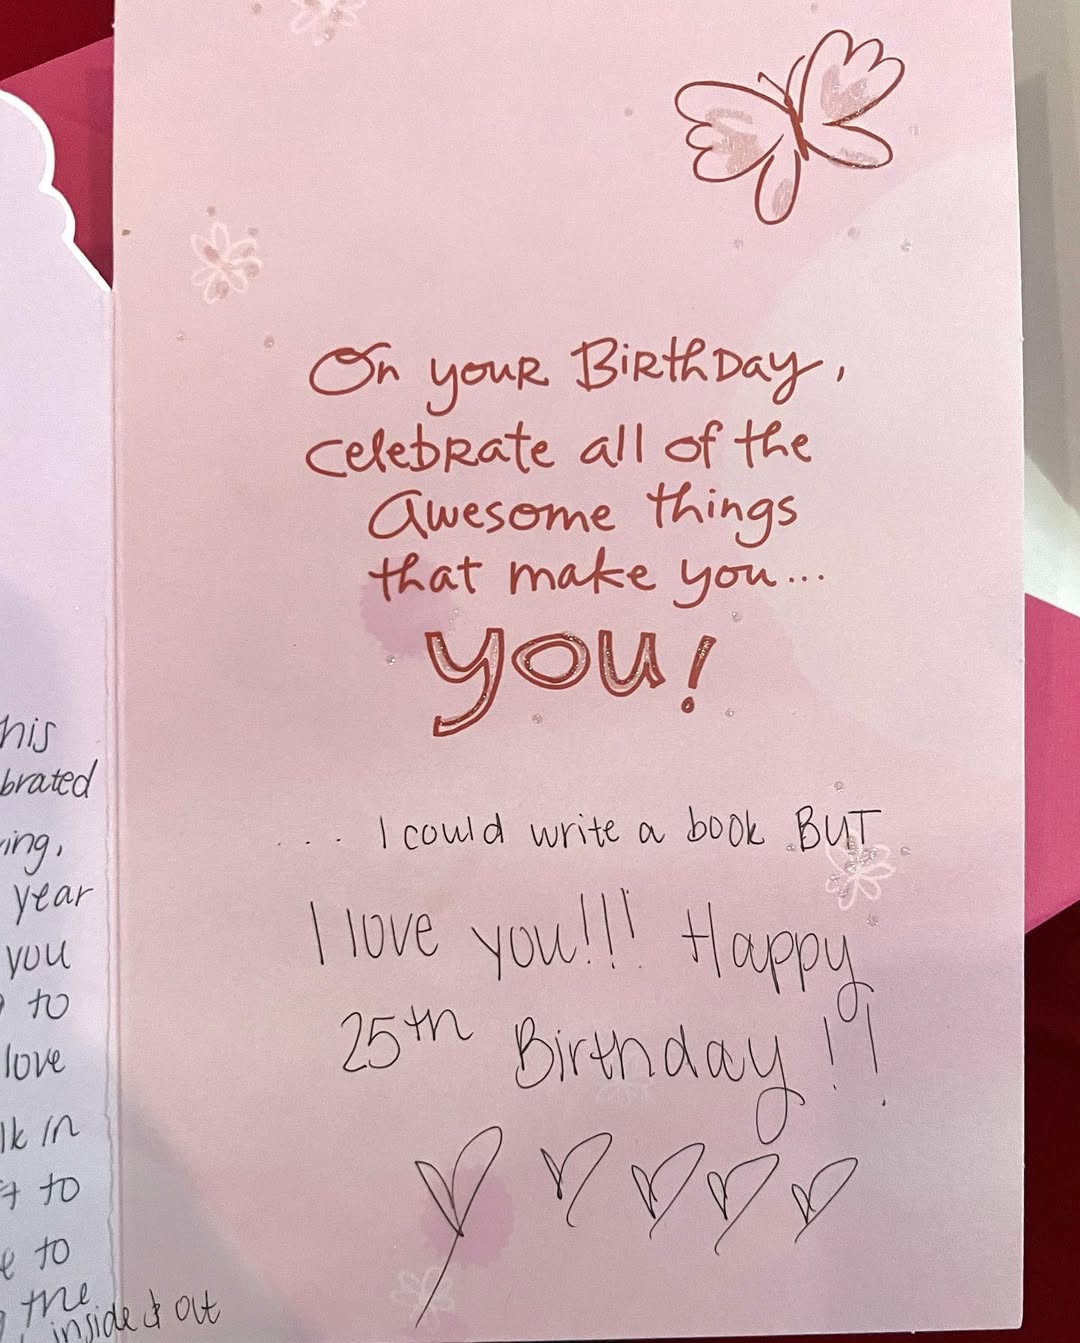 his
brated
ing,
year
you
to
love
lk in
to
e to
the
inside & out
On your Birthday,
celebrate all of the
awesome things
that make you...
you!
.... I could write a book BUT
I love you!!! Happy
25th Birthday!!